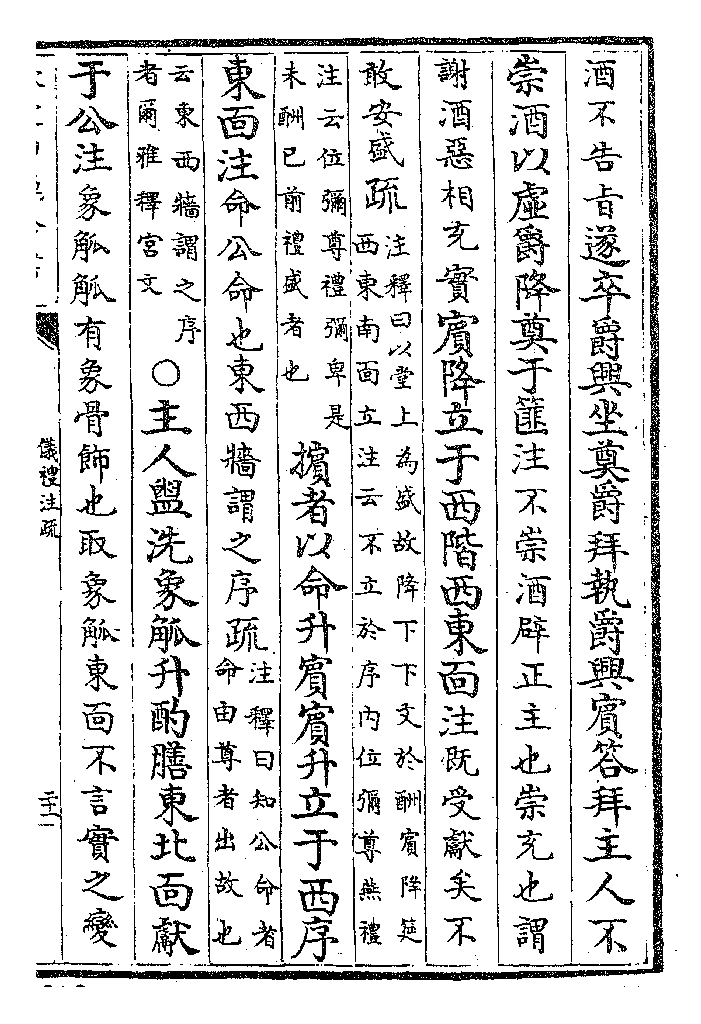 酒不告旨遂卒爵興坐奠爵拜執爵興賓答拜主人不
崇酒以虛爵降奠于篚注不崇酒辟正主也崇充也謂
謝酒惡相充實賓降立于西階西東面注既受獻矣不
敢安盛疏注釋曰以堂上為盛故降下下文於酬賓降筵
西東南面立注云不立於序內位彌尊燕禮
注云位彌尊禮彌卑是
未酬已前禮盛者也
擯者以命升賓賓升立于西序
東面注命公命也東西牆謂之序疏注釋曰知公命者
命由尊者出故也
云東西牆謂之序
者爾雅釋宮文
○主人盥洗象觚升酌膳東北面獻
于公注象觚觚有象骨飾也取象觚東面不言實之變
儀禮注疏
二十一